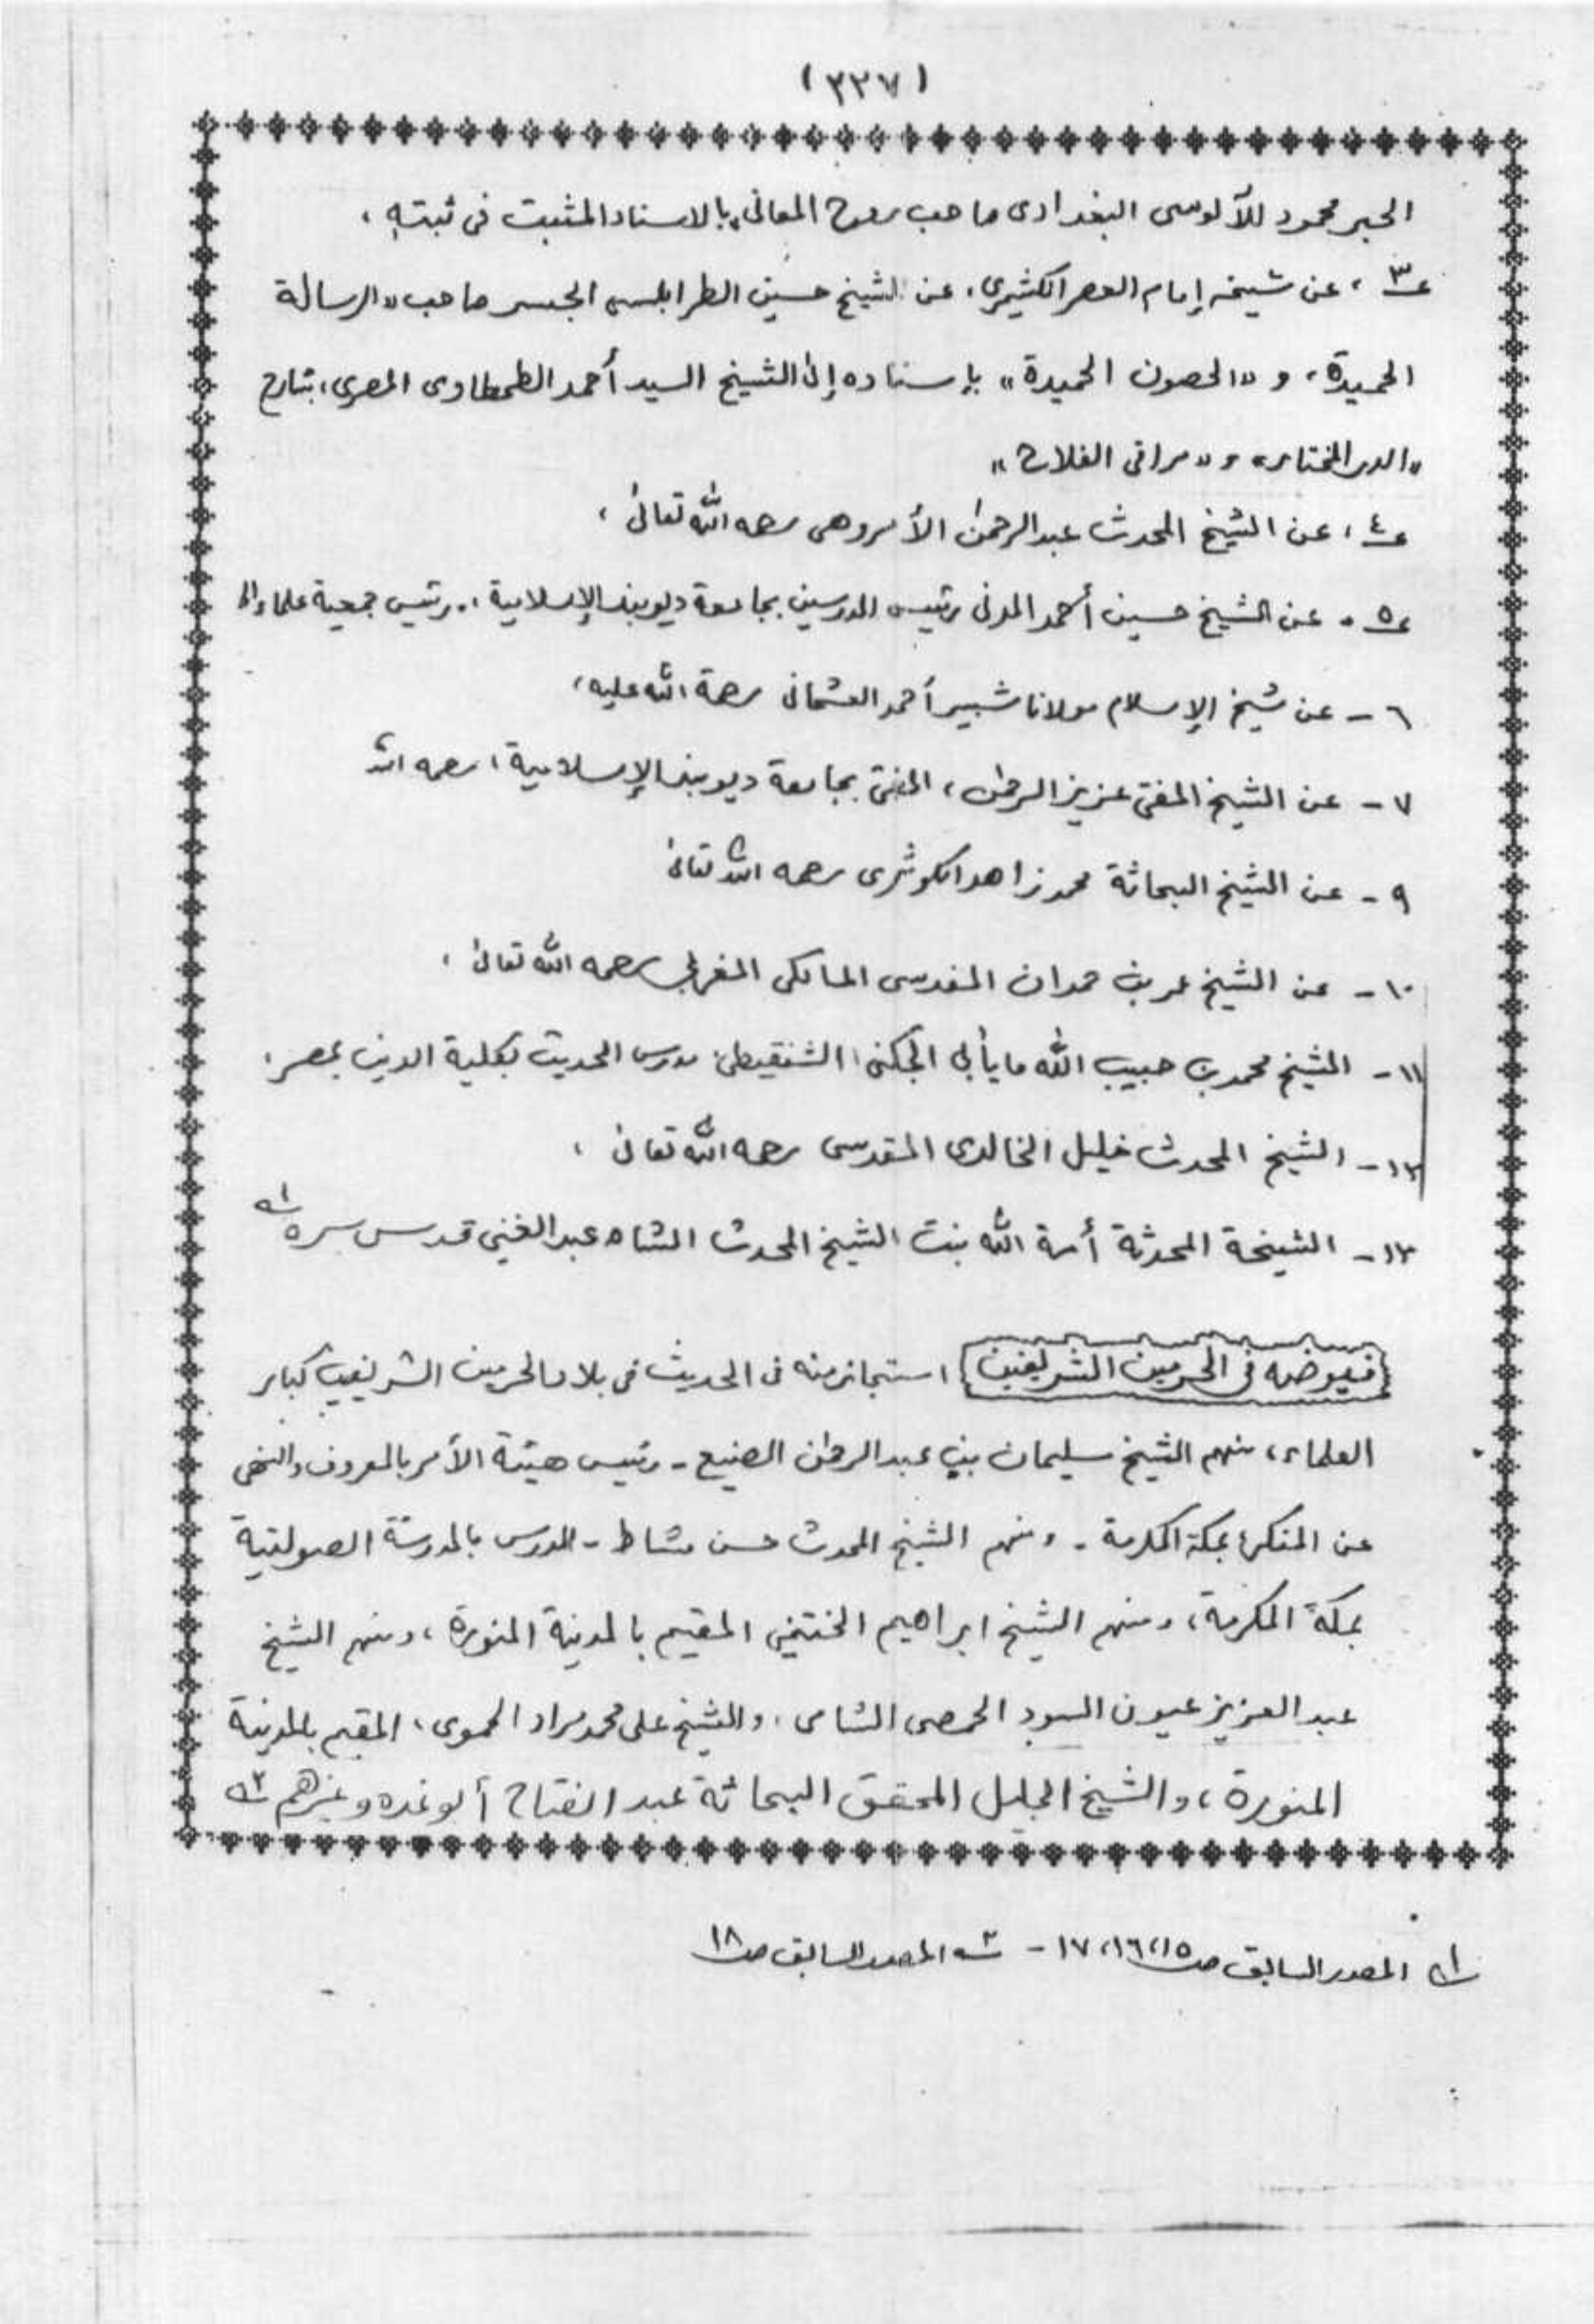 (٢٢٧)
الحبر محمود للآلوسى البغدادى صاحب روح المعانى، بالاسناد المثبت فى ثبته،
ع٣، عن شيخه إمام العصر الكشميرى، عن الشيخ حسين الطرابلسى الجسر صاحب «الرسالة
الحميدة، و «الحصون الحميدة» بإسناده إلى الشيخ السيد أحمد الطحطاوى المصرى، شارح
«الدر المختار» و «مراقى الفلاح»
ع٤، عن الشيخ المحدث عبد الرحمن الأمروهى رحمه الله تعالىٰ،
ع٥. عن الشيخ حسين أحمد المدنى رئيس المدرسين بجامعة ديوبند الإسلامية، ورئيس جمعية علماء الـ
٦ - عن شيخ الإسلام مولانا شبير أحمد العثمانى رحمة الله عليه،
٧ - عن الشيخ المفتى عزيز الرحمن، المفتى بجامعة ديوبند الإسلامية، رحمه الله
٩ - عن الشيخ البحاثة محمد زاهد الكوثرى رحمه الله تعالىٰ
١٠ - عن الشيخ عمر بن حمدان المقدسى المالكى المغربى رحمه الله تعالىٰ،
١١ - الشيخ محمد بن حبيب الله مايأبى الجكنى، الشنقيطى، مدرس الحديث بكلية الدين بمصر،
١٢ - الشيخ المحدث خليل الخالدى المقدسى رحمه الله تعالىٰ،
١٣ - الشيخة المحدثة أمة الله بنت الشيخ المحدث الشاه عبد الغنى قدس سره ١
فيوضه فى الحرمين الشريفين، استجاز منه فى الحديث فى بلاد الحرمين الشريفين كبار
العلماء، منهم الشيخ سليمان بن عبد الرحمن الصنيع - رئيس هيئة الأمر بالمعروف والنهى
عن المنكر بمكة المكرمة - ومنهم الشيخ المحدث حسن مشاط - المدرس بالمدرسة الصولتية
بمكة المكرمة، ومنهم الشيخ ابراهيم الختنى المقيم بالمدينة المنورة، ومنهم الشيخ
عبد العزيز عيون السود الحمصى الشامى، والشيخ على محمد مراد الحموى، المقيم بالمدينة
المنورة، والشيخ الجليل المحقق البحاثة عبد الفتاح أبو غده وغيرهم ٢
١ المصدر السابق ص ١٥، ١٦، ١٧ - ٢ المصدر السابق ص ١٨